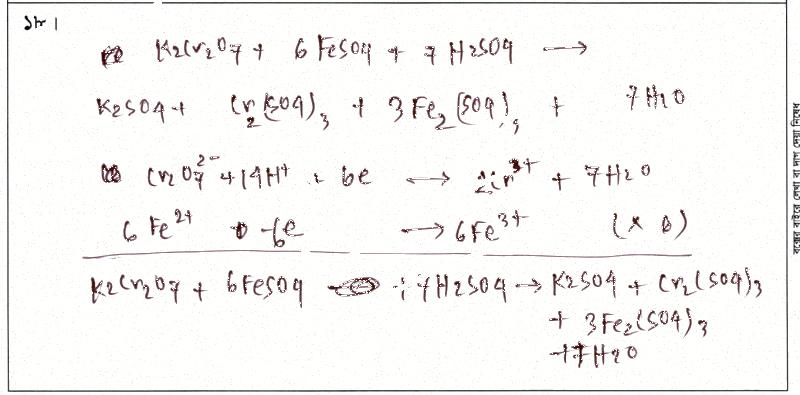 ১৮।
K2Cr2O7 + 6 FeSO4 + 7 H2SO4 →
K2SO4 + Cr2(SO4)3 + 3 Fe2(SO4)3 + 7H2O
Cr2O7 2- + 14H+ + 6e → 2Cr3+ + 7H2O
6 Fe2+ - 6e → 6Fe3+ (× 6)
K2Cr2O7 + 6FeSO4 + 7H2SO4 → K2SO4 + Cr2(SO4)3
+ 3Fe2(SO4)3
+ 7H2O
বক্সের বাইরে লেখা বা দাগ দেয়া নিষেধ